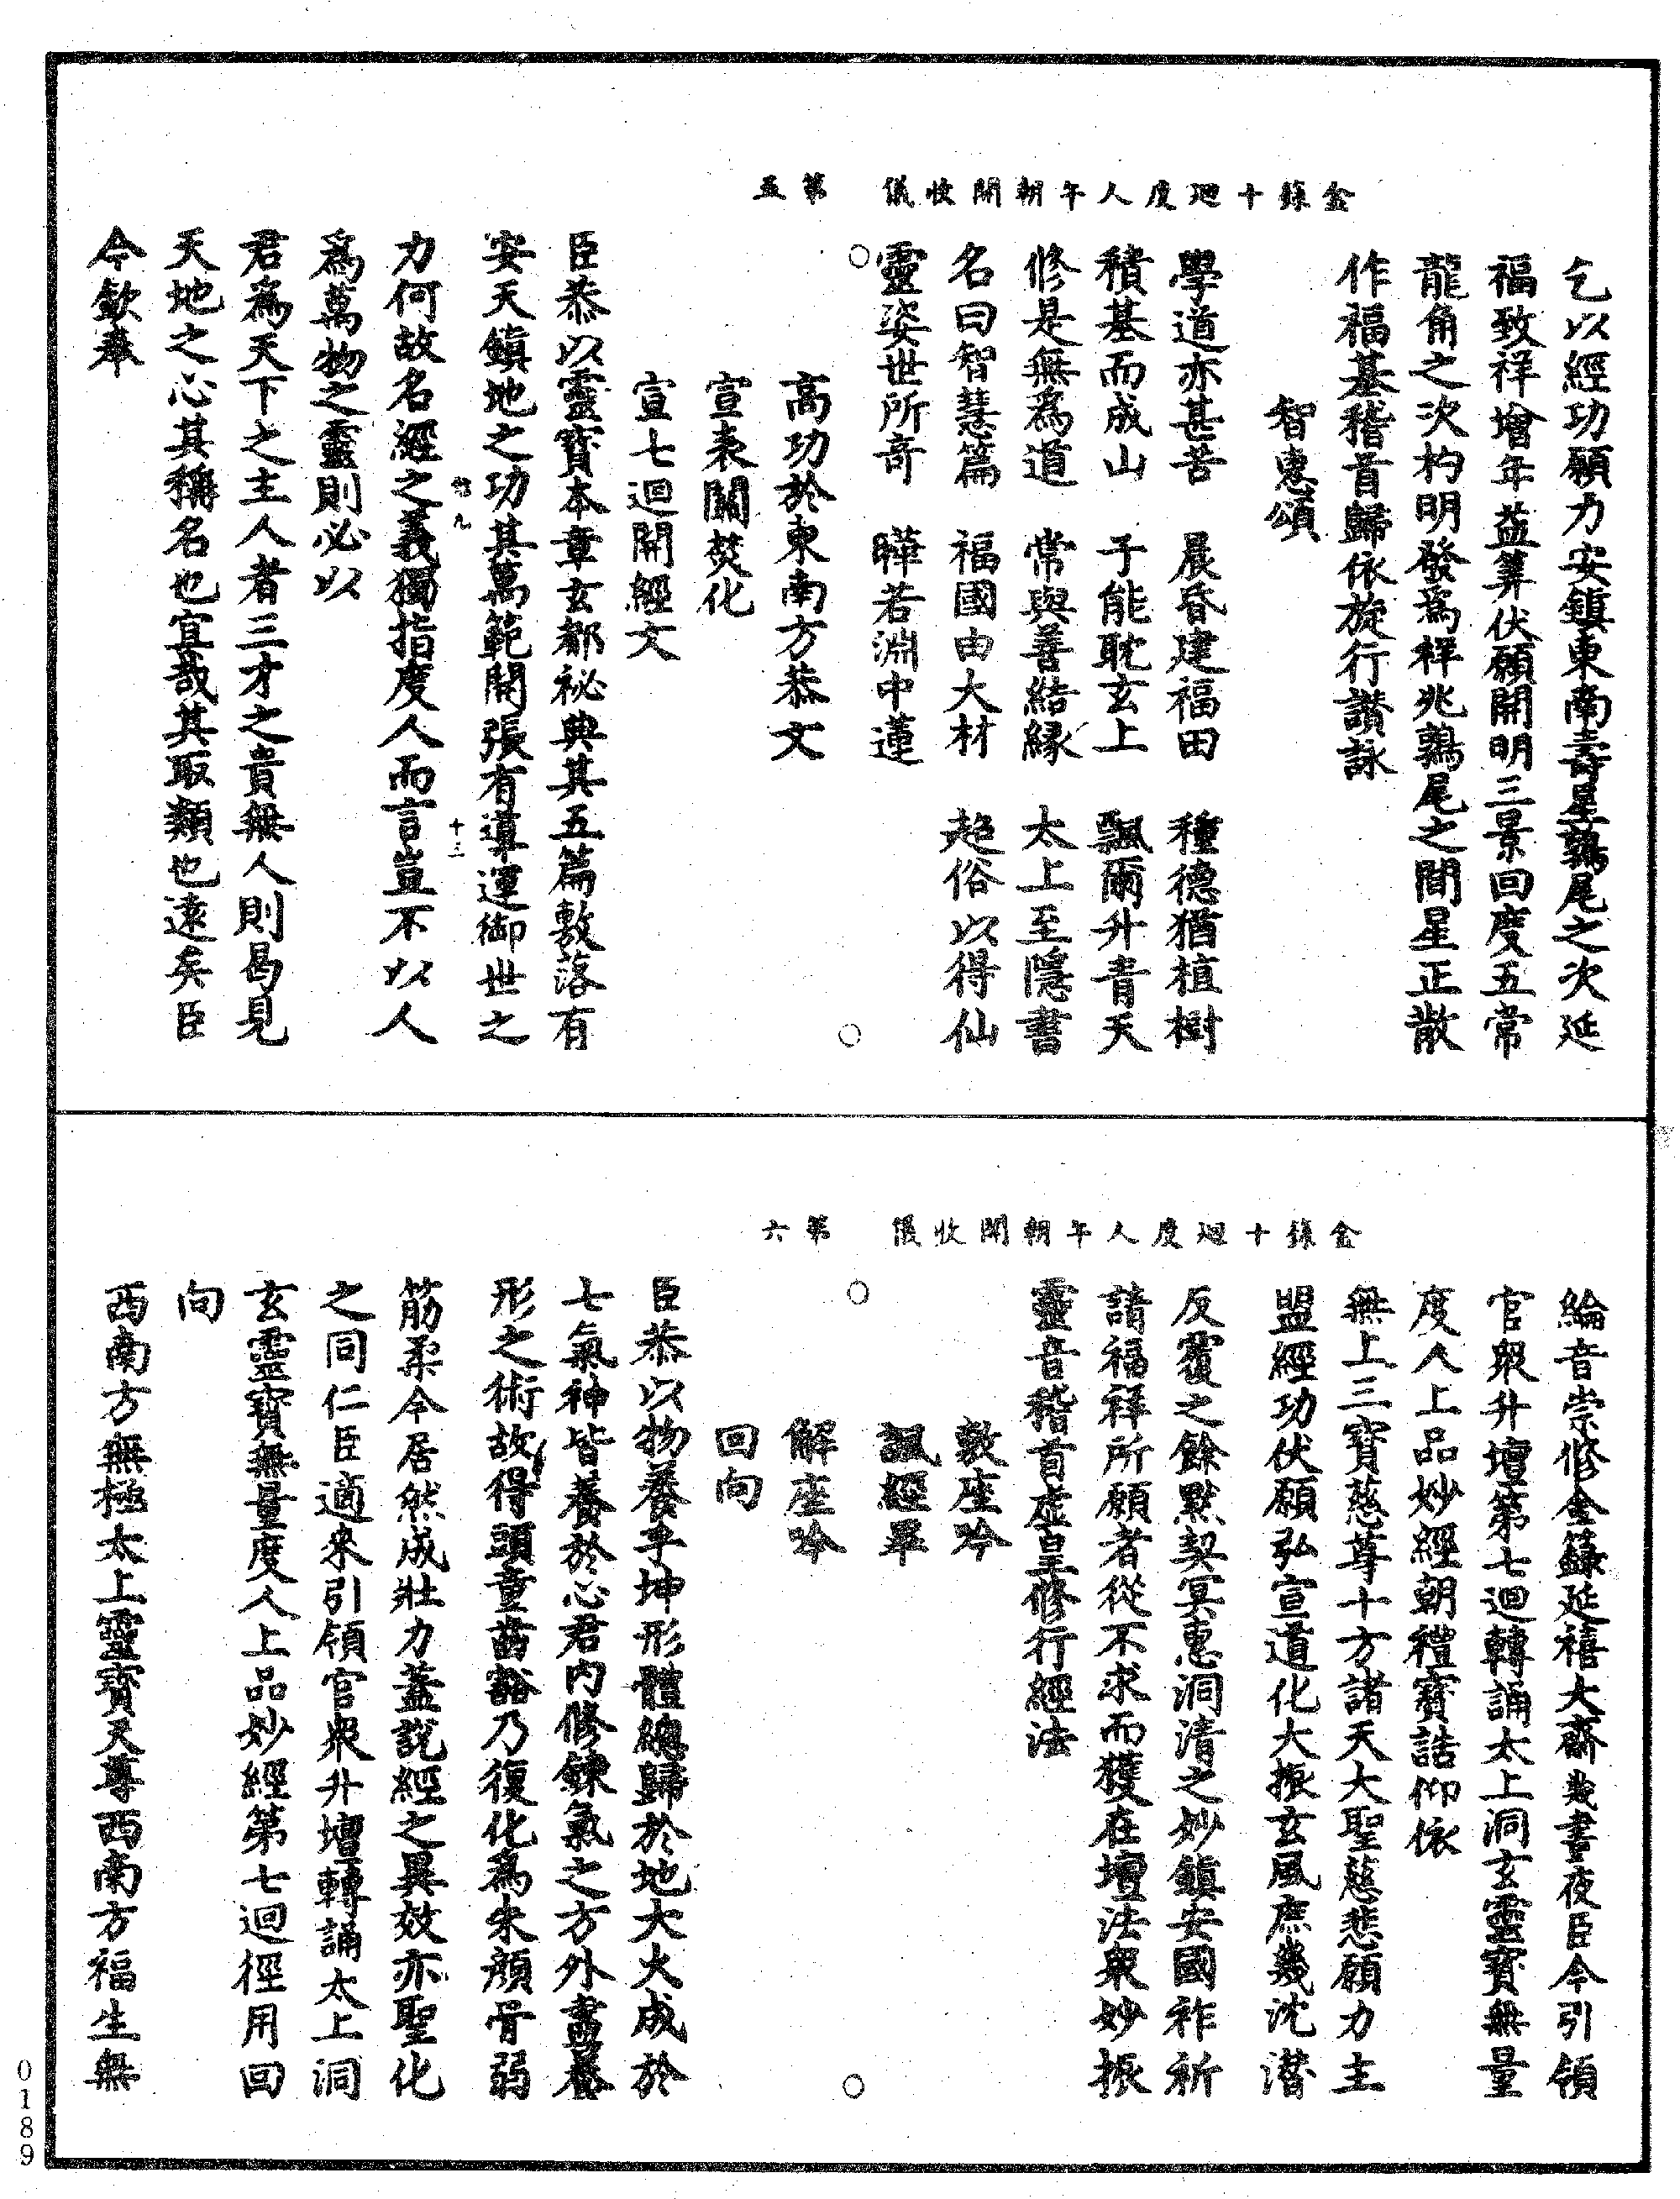 金籙十迴度人午朝開收儀　第五
乞以經功願力安鎮東南壽星鶉尾之次延
福致祥增年益筭伏願開明三景回度五常
龍角之次杓明發爲祥兆鶉尾之間星正散
作福基稽首歸依旋行讚詠
智惠頌
學道亦甚苦　晨昏建福田　種德猶植樹
積基而成山　子能耽玄上　飄爾升青天
修是無爲道　常與善結緣　太上至隱書
名曰智慧篇　福國由大材　超俗以得仙
靈姿世所奇　曄若淵中蓮
高功於東南方恭文
宣表關焚化
宣七迴開經文
臣恭以靈寶本章玄都祕典其五篇敷落有
安天鎮地之功其萬範開張有導運御世之
九　十三
力何故名經之義獨指度人而言豈不以人
爲萬物之靈則必以
君爲天下之主人者三才之貴無人則曷見
天地之心其稱名也宜哉其取類也遠矣臣
今欽奉
金籙十迴度人午朝開收儀　第六
綸音崇修金籙延禧大齋幾晝夜臣今引領
官衆升壇第七迴轉誦太上洞玄靈寶無量
度人上品妙經朝禮寶誥仰依
無上三寶慈尊十方諸天大聖慈悲願力主
盟經功伏願弘宣道化大振玄風庶幾沈潛
反覆之餘默契冥惠洞清之妙鎮安國祚祈
請福祥所願者從不求而獲在壇法衆妙振
靈音稽首虛皇修行經法
敷座吟
諷經畢
解座吟
回向
臣恭以物養乎坤形體總歸於地大火成於
七氣神皆養於心君内修鍊氣之方外盡養
形之術故得頭童齒豁乃復化爲朱顏骨弱
筋柔今居然成壯力蓋說經之異效亦聖化
之同仁臣適來引領官衆升壇轉誦太上洞
玄靈寶無量度人上品妙經第七迴徑用回
向
西南方無極太上靈寶天尊西南方福生無
0189